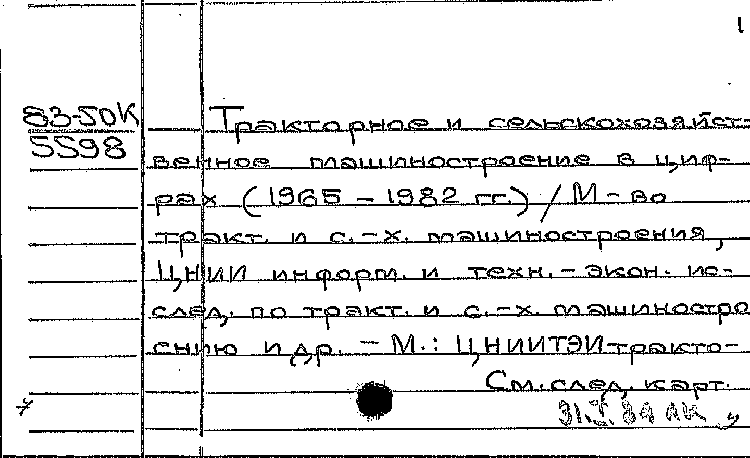 1
83-50К
5598
Тракторное и сельскохозяйст-
венное машиностроение в циф-
рах (1965 – 1982 гг.) / М-во
тракт. и с.-х. машиностроения,
ЦНИИ информ. и техн.-экон. ис-
след. по тракт. и с.-х. машиностро
ению и др. – М.: ЦНИИТЭИтракто-
См. след. карт.